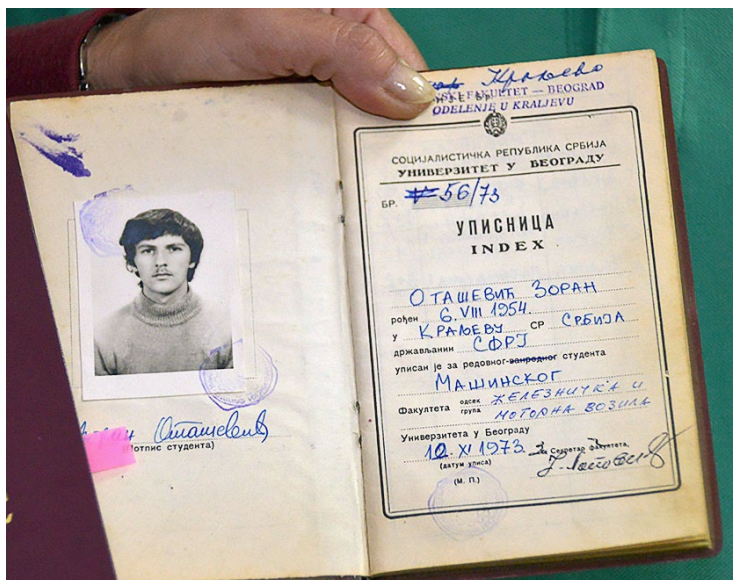 Оташевић
(Потпис студента)
Краљево
FAKULTET — BEOGRAD
ODELENJE U KRALJEVU
СОЦИЈАЛИСТИЧКА РЕПУБЛИКА СРБИЈА
УНИВЕРЗИТЕТ У БЕОГРАДУ
БР. 56/73
УПИСНИЦА
INDEX
ОТАШЕВИЋ ЗОРАН
рођен 6. VIII 1954.
у КРАЉЕВУ СР СРБИЈА
држављанин СФРЈ
уписан је за редовног-ванредног студента
МАШИНСКОГ
Факултета одсек група ЖЕЛЕЗНИЧКА И
МОТОРНА ВОЗИЛА
Универзитета у Београду
12. XI 1973 Секретар факултета,
(датум уписа)
(М. П.)